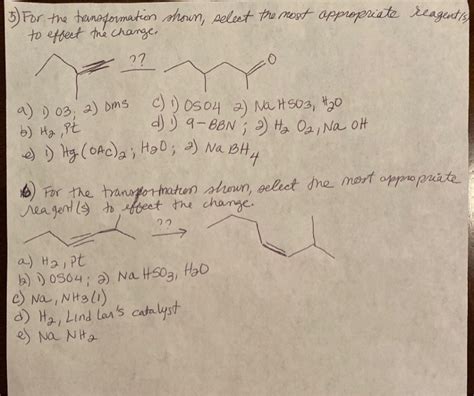 5) For the transformation shown, select the most appropriate reagent(s)
to effect the change.
??
O
a) 1) O3; 2) DMS
c) 1) OSO4 2) NaHSO3, H2O
b) H2, Pt
d) 1) 9-BBN; 2) H2O2, NaOH
e) 1) Hg(OAc)2; H2O; 2) NaBH4
6) For the transformation shown, select the most appropriate
reagent(s) to effect the change.
??
a) H2, Pt
b) 1) OSO4; 2) NaHSO3, H2O
c) Na, NH3(l)
d) H2, Lindlar's catalyst
e) NaNH2